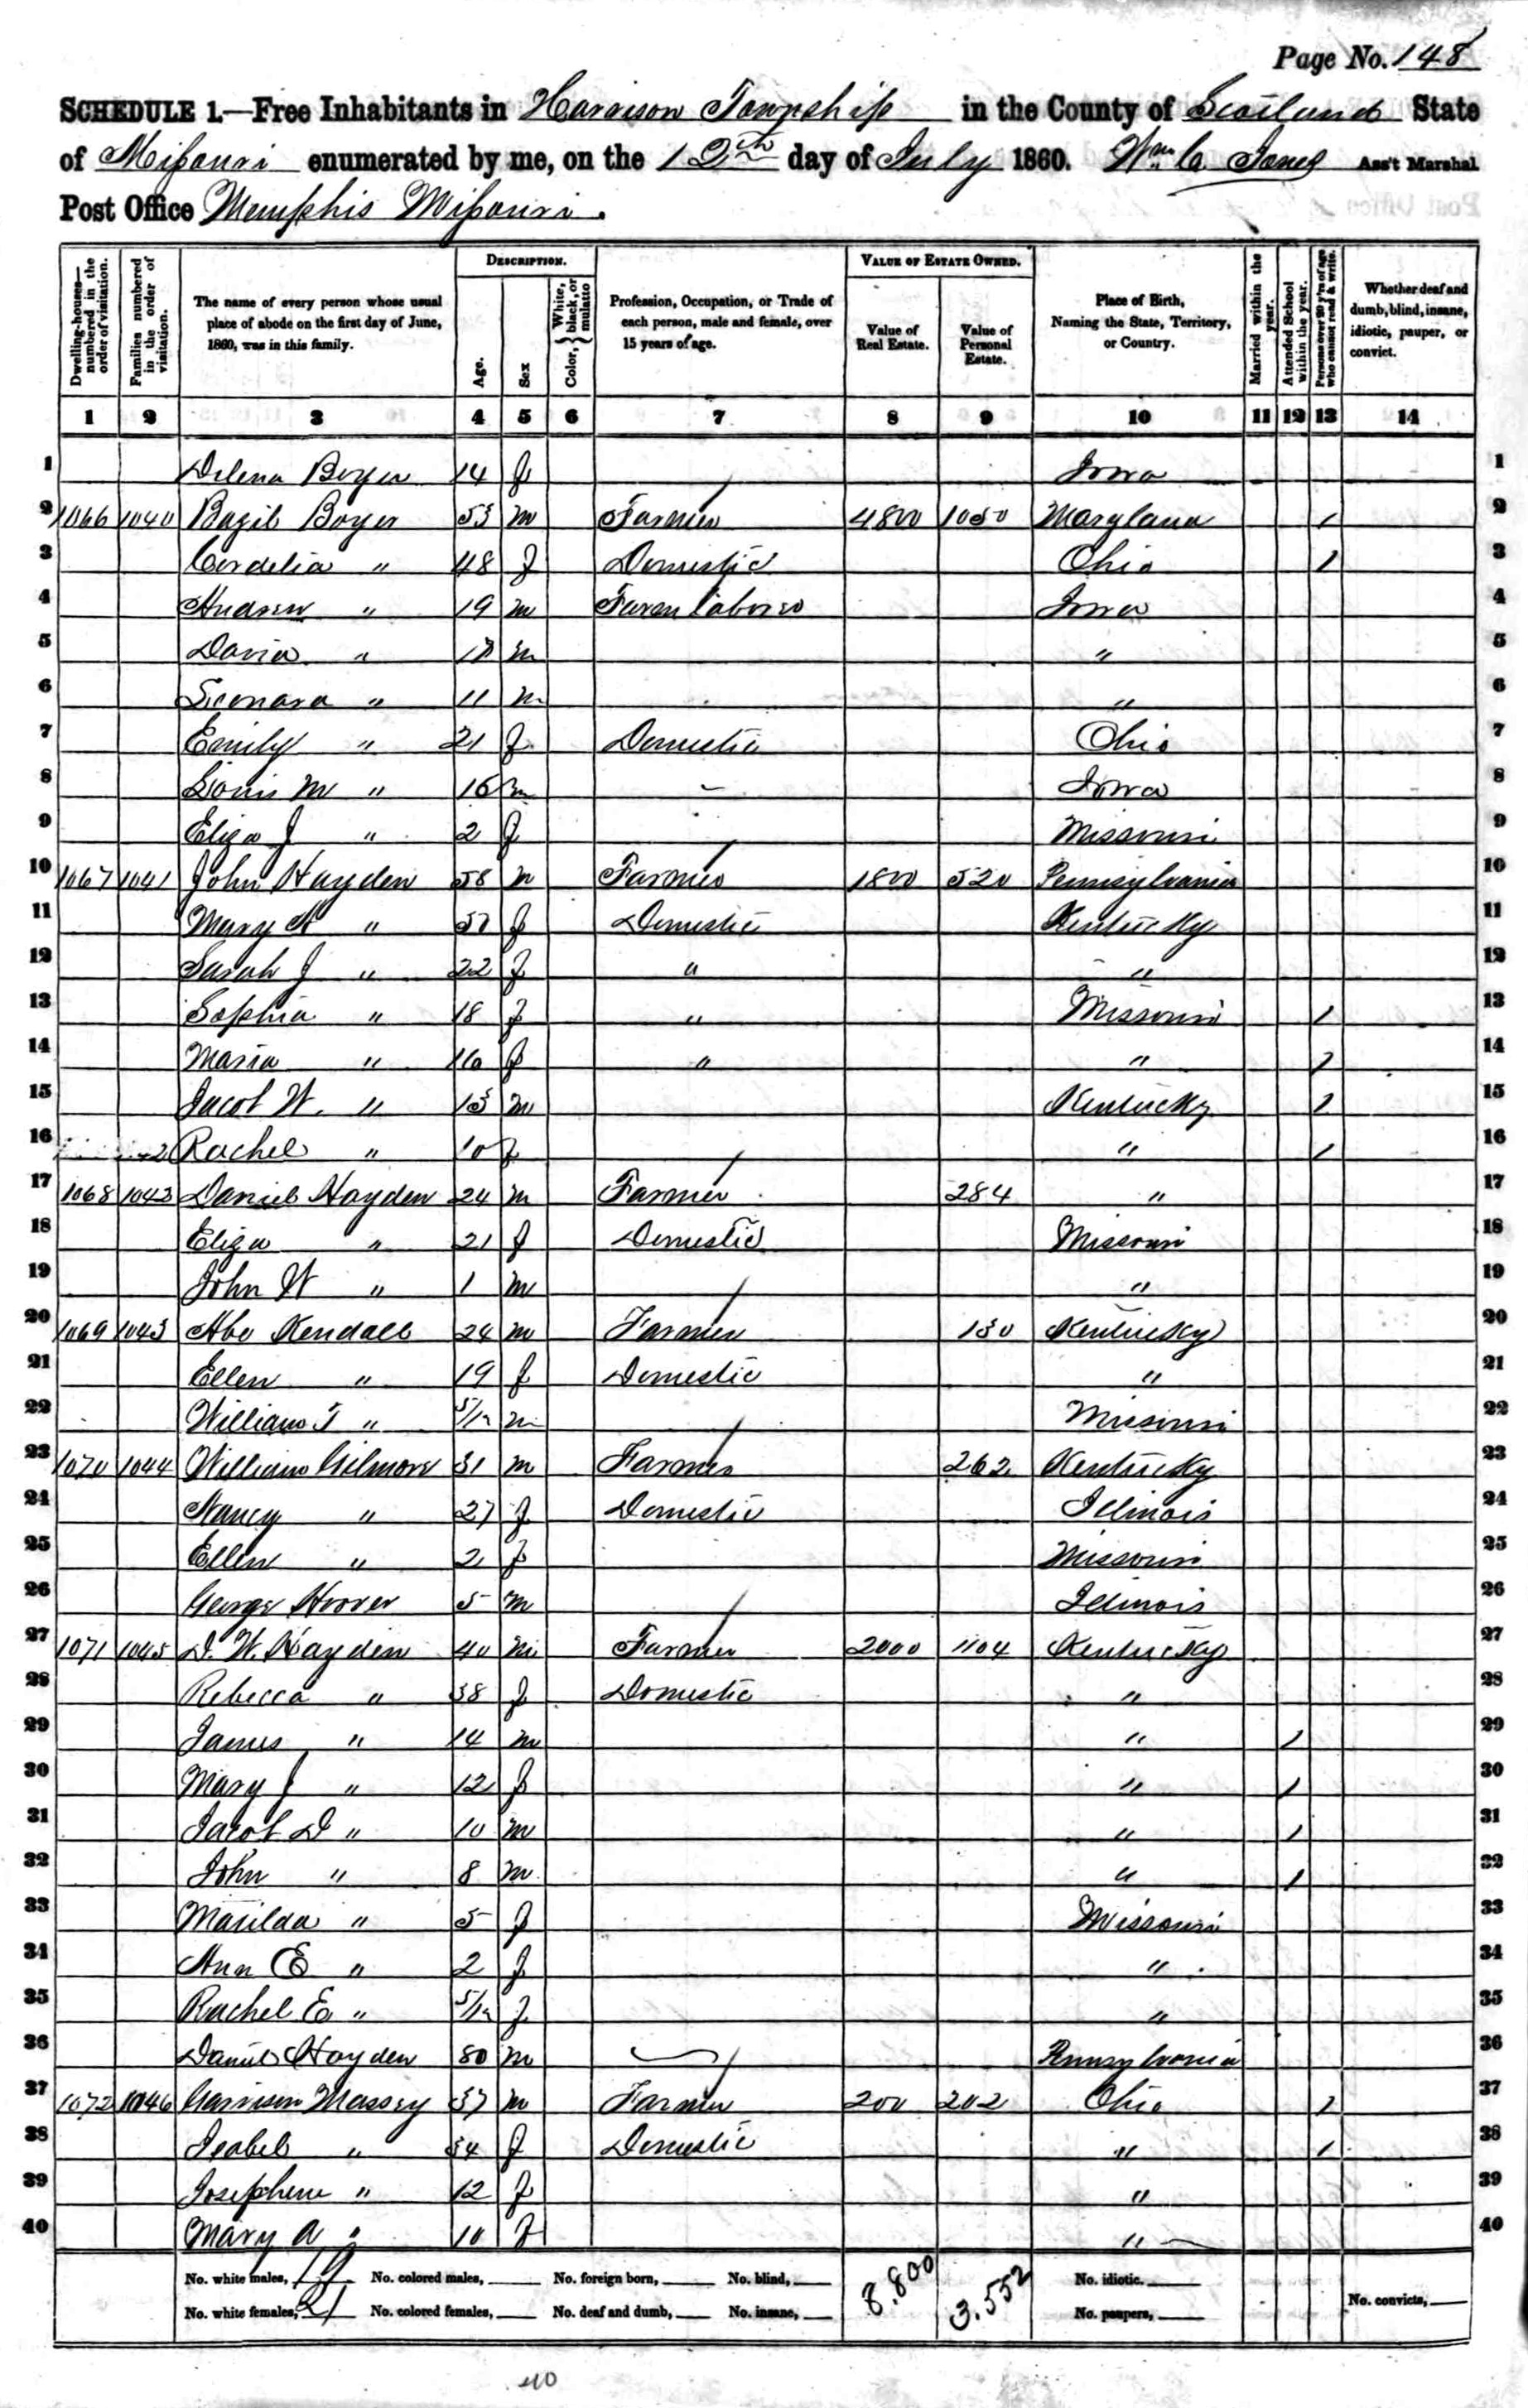 Page No. 148
SCHEDULE 1.—Free Inhabitants in Harrison Township in the County of Scotland State
of Missouri enumerated by me, on the 12th day of July 1860. Wm. C. Jones Ass't Marshal
Post Office Memphis Missouri.
Dwelling-houses—numbered in the order of visitation. Families numbered in the order of visitation. The name of every person whose usual place of abode on the first day of June, 1860, was in this family. DESCRIPTION. Age. Sex Color, { White, black, or mulatto Profession, Occupation, or Trade of each person, male and female, over 15 years of age. VALUE OF ESTATE OWNED. Value of Real Estate. Value of Personal Estate. Place of Birth, Naming the State, Territory, or Country. Married within the year. Attended School within the year. Persons over 20 y'rs of age who cannot read & write. Whether deaf and dumb, blind, insane, idiotic, pauper, or convict.
1 2 3 4 5 6 7 8 9 10 11 12 13 14
1 Delena Boyer 14 f Iowa 1
2 1066 1040 Bazil Boyer 53 m Farmer 4800 1050 Maryland 1 2
3 Cordelia " 48 f Domestic Ohio 1 3
4 Andrew " 19 m Farm laborer Iowa 4
5 David " m " 5
6 Leonard " 11 m " 6
7 Emily " 21 f Domestic Ohio 7
8 Louis M " 16 m – Iowa 8
9 Eliza J " 2 f Missouri 9
10 1067 1041 John Hayden 58 m Farmer 1800 520 Pennsylvania 10
11 Mary " f Domestic Kentucky 11
12 Sarah J " 22 f " " 12
13 Sophia " 18 f " Missouri 1 13
14 Maria " 16 f " " 1 14
15 Jacob W. " 13 m Kentucky 1 15
16 Rachel " 10 f " 1 16
17 1068 1042 Daniel Hayden 24 m Farmer 284 " 17
18 Eliza " 21 f Domestic Missouri 18
19 John W " 1 m " 19
20 1069 1043 Abe Kendall 24 m Farmer 130 Kentucky 20
21 Ellen " 19 f Domestic " 21
22 William T " 5/12 m Missouri 22
23 1070 1044 William Gilmore 31 m Farmer 262 Kentucky 23
24 Nancy " 27 f Domestic Illinois 24
25 Ellen " 2 f Missouri 25
26 George Hoover 5 m Illinois 26
27 1071 1045 D. W. Hayden 40 m Farmer 2000 1104 Kentucky 27
28 Rebecca " 38 f Domestic " 28
29 James " 14 m " 1 29
30 Mary J " 12 f " 1 30
31 Jacob D " 10 m " 1 31
32 John " 8 m " 1 32
33 Matilda " 5 f Missouri 33
34 Ann E " 2 f " 34
35 Rachel E " 5/12 f " 35
36 Daniel Hayden 80 m Pennsylvania 36
37 1072 1046 Garrison Massey 37 m Farmer 200 202 Ohio 1 37
38 Isabel " 34 f Domestic " 1 38
39 Josephene " 12 f " 39
40 Mary A " 10 f " 40
No. white males, 19 No. colored males, No. foreign born, No. blind, 8.800 3.552 No. idiotic.
No. white females, 21 No. colored females, No. deaf and dumb, No. insane, No. paupers, No. convicts,
40